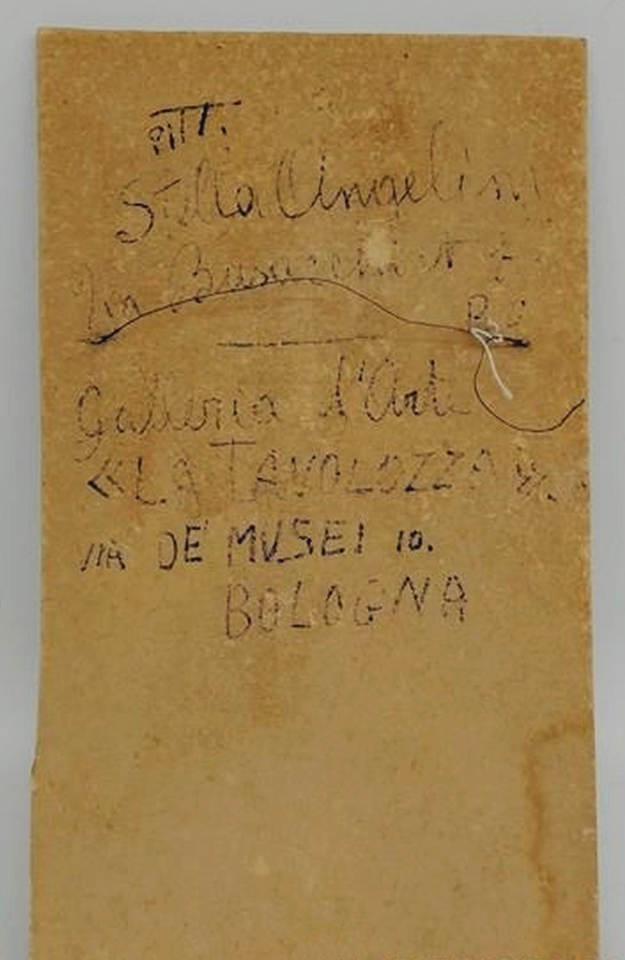 PITT.
Stella Angelini
Via
Bo
Galleria d'Arte
«LA TAVOLOZZA».
VIA DE' MUSEI 10.
BOLOGNA